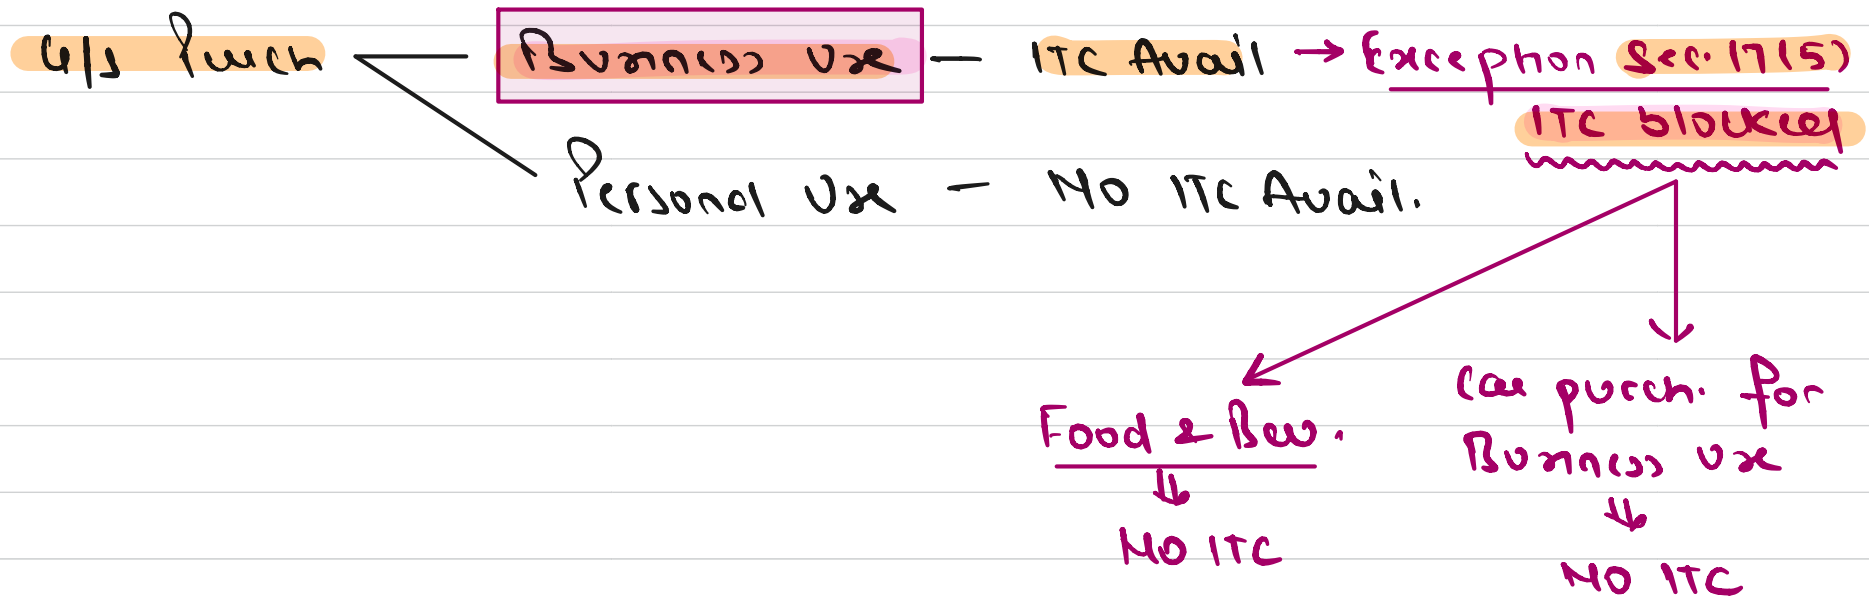 G/S Purch — Business Use — ITC Avail → Exception Sec. 17(5)
ITC blocked
Personal Use — No ITC Avail.
Food & Bev.
⇓
No ITC
Car purch. for
Business Use
⇓
No ITC